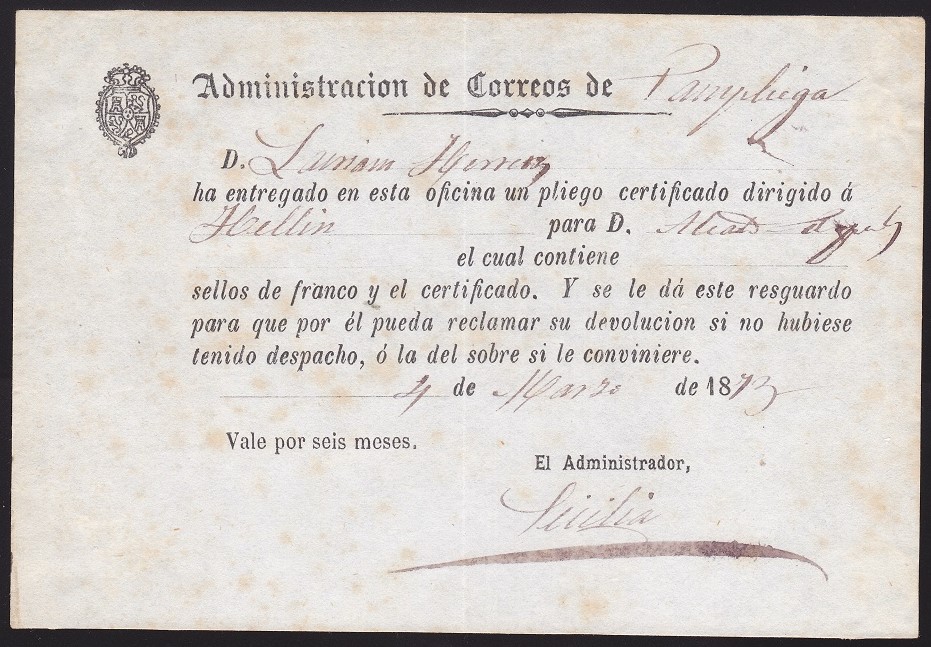 Administracion de Correos de Pampliega
D.
ha entregado en esta oficina un pliego certificado dirigido á
Hellin para D.
el cual contiene
sellos de franco y el certificado. Y se le dá este resguardo
para que por él pueda reclamar su devolucion si no hubiese
tenido despacho, ó la del sobre si le conviniere.
4 de Marzo de 1873
Vale por seis meses.
El Administrador,
Cicilia